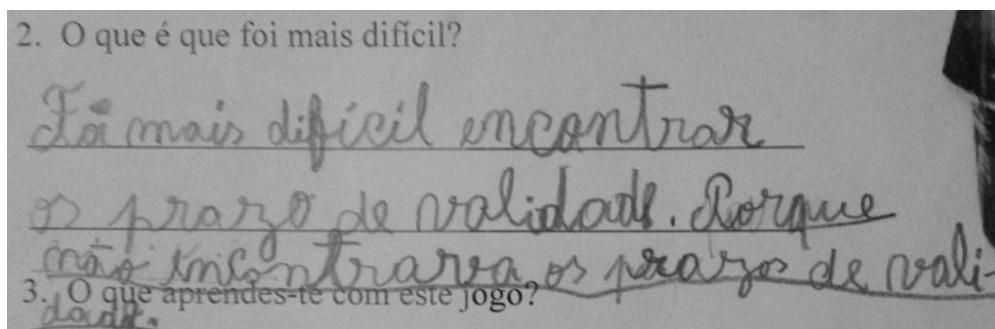 2. O que é que foi mais difícil?
Foi mais difícil encontrar
os prazo de validade. Porque
não incontrava os prazos de vali-
3. O que aprendes-te com este jogo?
dade.